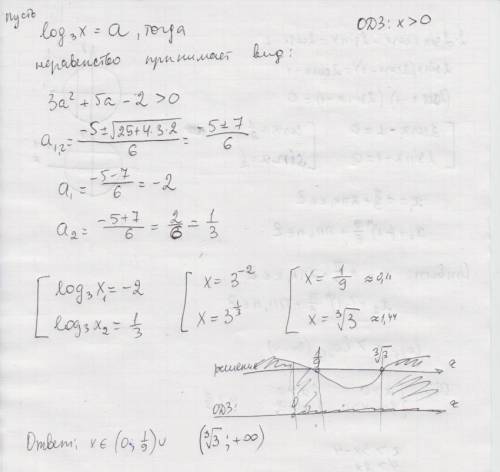 пусть
log₃x = a, тогда
ОДЗ: x > 0
неравенство принимает вид:
3a² + 5a - 2 > 0
a₁,₂ = (-5 ± √(25+4·3·2))/6 = (-5 ± 7)/6
a₁ = (-5-7)/6 = -2
a₂ = (-5+7)/6 = 2/6 = 1/3
[ log₃x₁ = -2 [ x = 3⁻² [ x = 1/9 ≈ 0,11
log₃x₂ = 1/3 x = 3^(1/3) x = ∛3 ≈ 1,44
1/9 ∛3
решение x
ОДЗ: 0 x
Ответ: x ∈ (0; 1/9) ∪ (∛3; +∞)